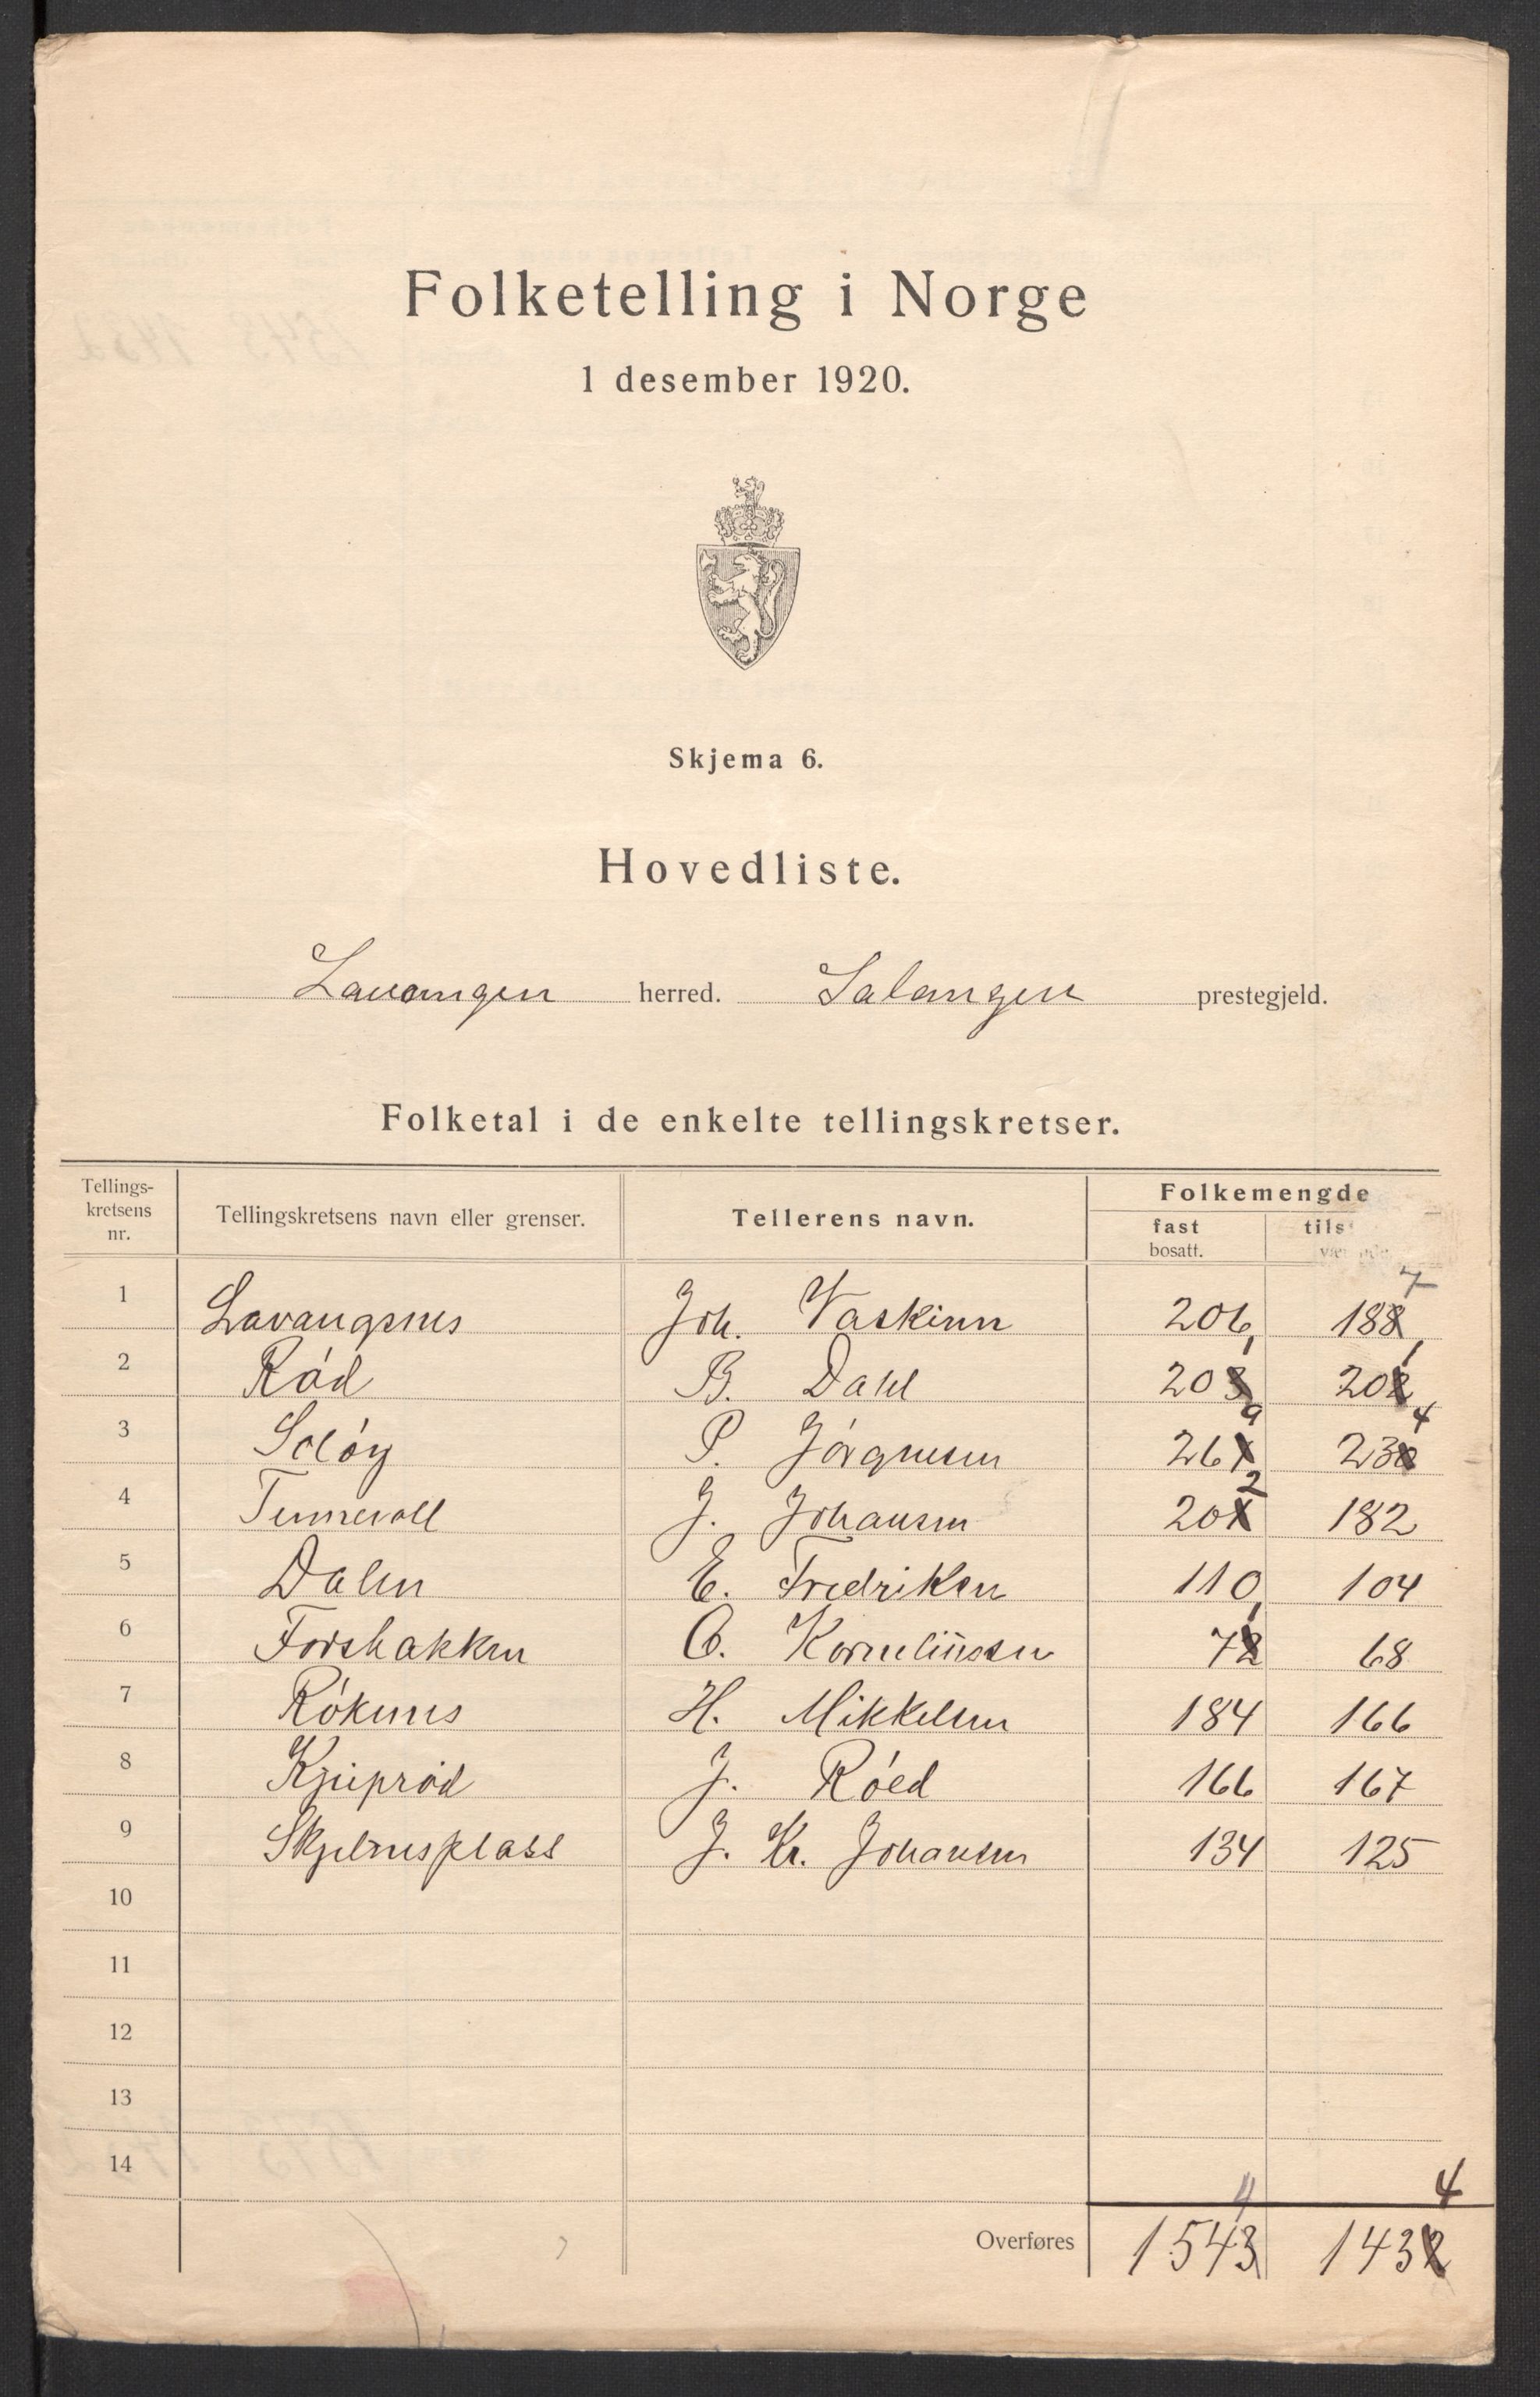 Folketelling i Norge
1 desember 1920.
Skjema 6.
Hovedliste.
Lavangen herred. Salangen prestegjeld.
Folketal i de enkelte tellingskretser.
Tellings-kretsens nr. Tellingskretsens navn eller grenser. Tellerens navn. Folkemengde
fast bosatt. tils
7
1 Lavangsnes Joh. Vaskinn 206 188
1 1
2 Rød B. Dahl 203 202
9 4
3 Soløy P. Jørgensen 261 230
2
4 Tennevoll J. Johansen 201 182
5 Dalen E. Fredriksen 110 104
1
6 Forsbakken O. Korneliussen 72 68
7 Røkenes H. Mikkelsen 184 166
8 J. Røed 166 167
9 Skjelnesplass J. Kr. Johansen 134 125
10
11
12
13
14
4 4
Overføres 1543 1432